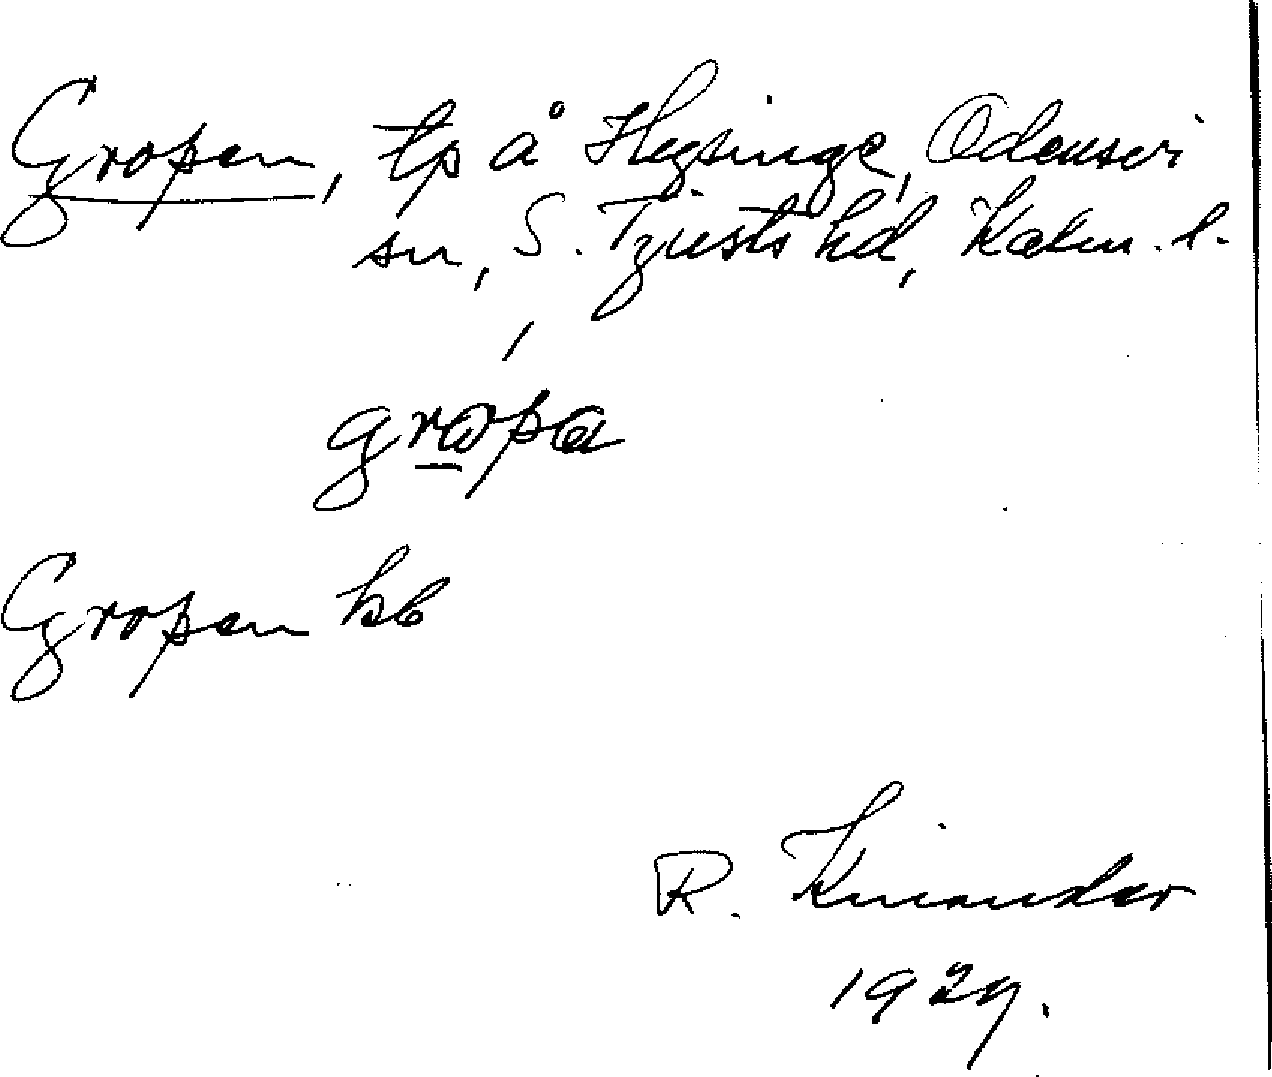 Gropen, tp å Hegsinge, Odensvi
sn, S. Tjusts hd, Kalm. l.
gropa
Gropen kb
R. Kinander
1929.